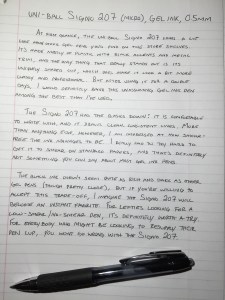 UNI-BALL SIGNO 207 (MICRO), GEL INK, 0.5MM
AT FIRST GLANCE, THE UNI-BALL SIGNO 207 LOOKS A LOT
LIKE
IT'S MADE MOSTLY OF PLASTIC, WITH SOME ACCENTS AND METAL
TRIM, AND THE ONLY THING THAT REALLY STANDS OUT IS ITS
MAKE IT LOOK A BIT MORE
CLASSY AND PROFESSIONAL. BUT AFTER USING IT FOR A COUPLE
DAYS, I WOULD DEFINITELY RAVE THIS GEL INK PEN
AMONG THE BEST THAT I'VE USED.
THE SIGNO 207 HAS THE BASICS DOWN: IT IS COMFORTABLE
TO WRITE WITH, AND IT MAKES CLEAN, CONSISTENT LINES. MORE
THAN ANYTHING ELSE, HOWEVER, I AM IMPRESSED BY HOW SMUDGE-
PROOF THE INK APPEARS TO BE. I REALLY HAD TO TRY HARD TO
GET IT TO SMEAR ON STANDARD PAPER, AND THAT'S DEFINITELY
NOT SOMETHING YOU CAN SAY ABOUT MOST GEL PENS.
THE BLACK INK DOESN'T SEEM QUITE AS RICH AND DARK AS OTHER
GEL PENS (THOUGH PRETTY CLOSE), BUT IF YOU'RE WILLING TO
ACCEPT THIS TRADE-OFF, I IMAGINE THE SIGNO 207 WILL
BECOME AN INSTANT FAVORITE. FOR LEFTIES LOOKING FOR A
LOW-SMEAR/NO-SMEAR PEN, IT'S DEFINITELY WORTH A TRY.
FOR EVERYBODY WHO MIGHT BE LOOKING TO RESUPPLY THEIR
PEN CUP, YOU WON'T GO WRONG WITH THE SIGNO 207.